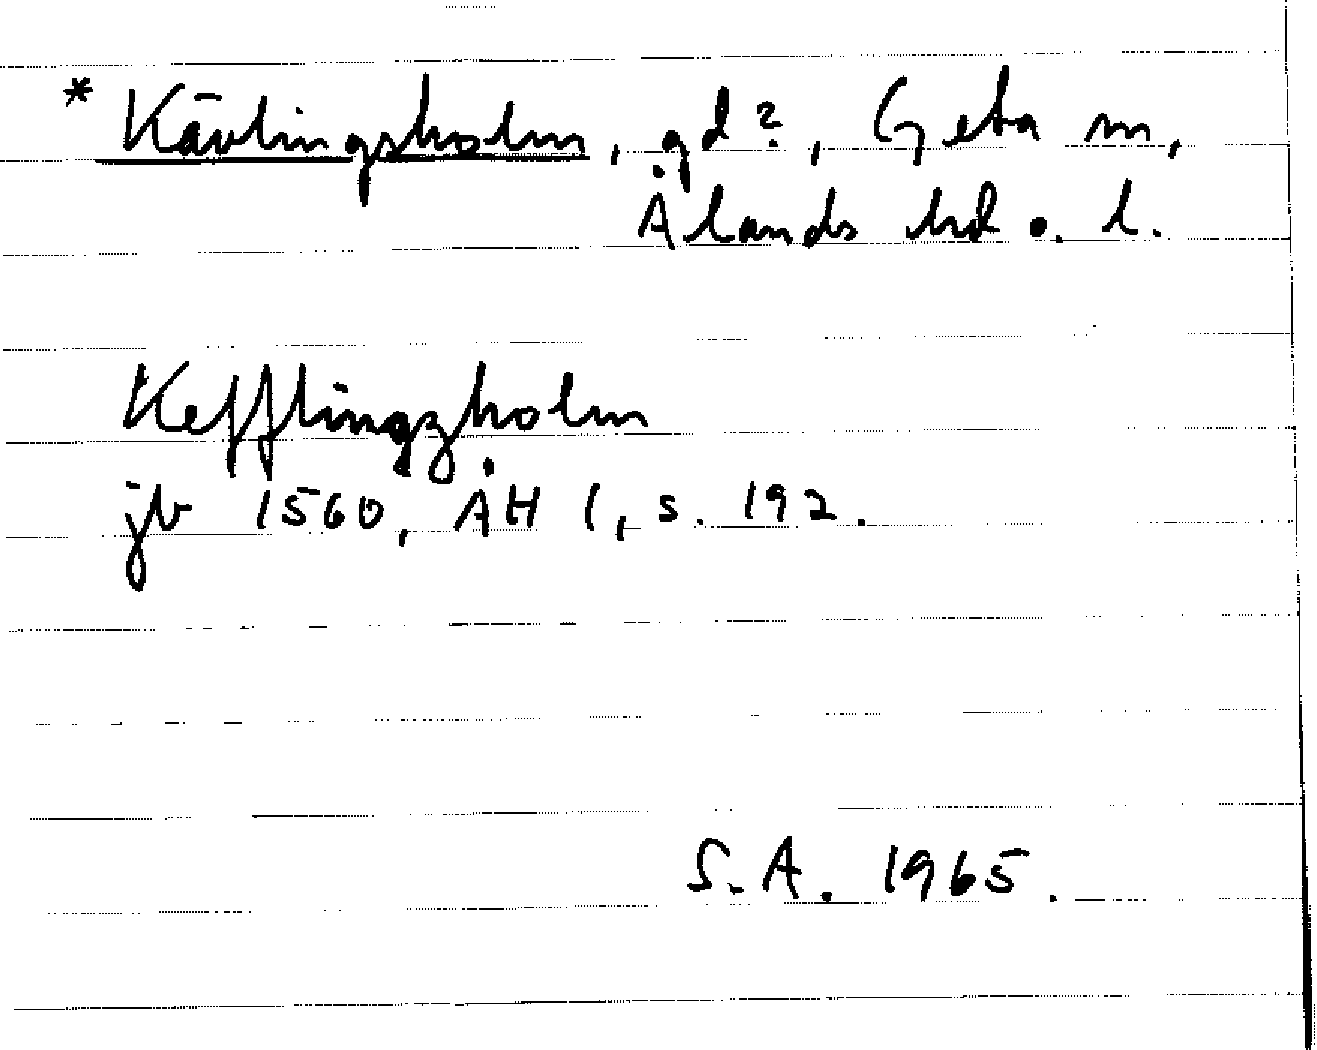 * Kävlingsholm, gd?, Geta sn,
Ålands hd o. l.
Kefflingzholm
jb 1560, ÅH 1, s. 192.
S.A. 1965.